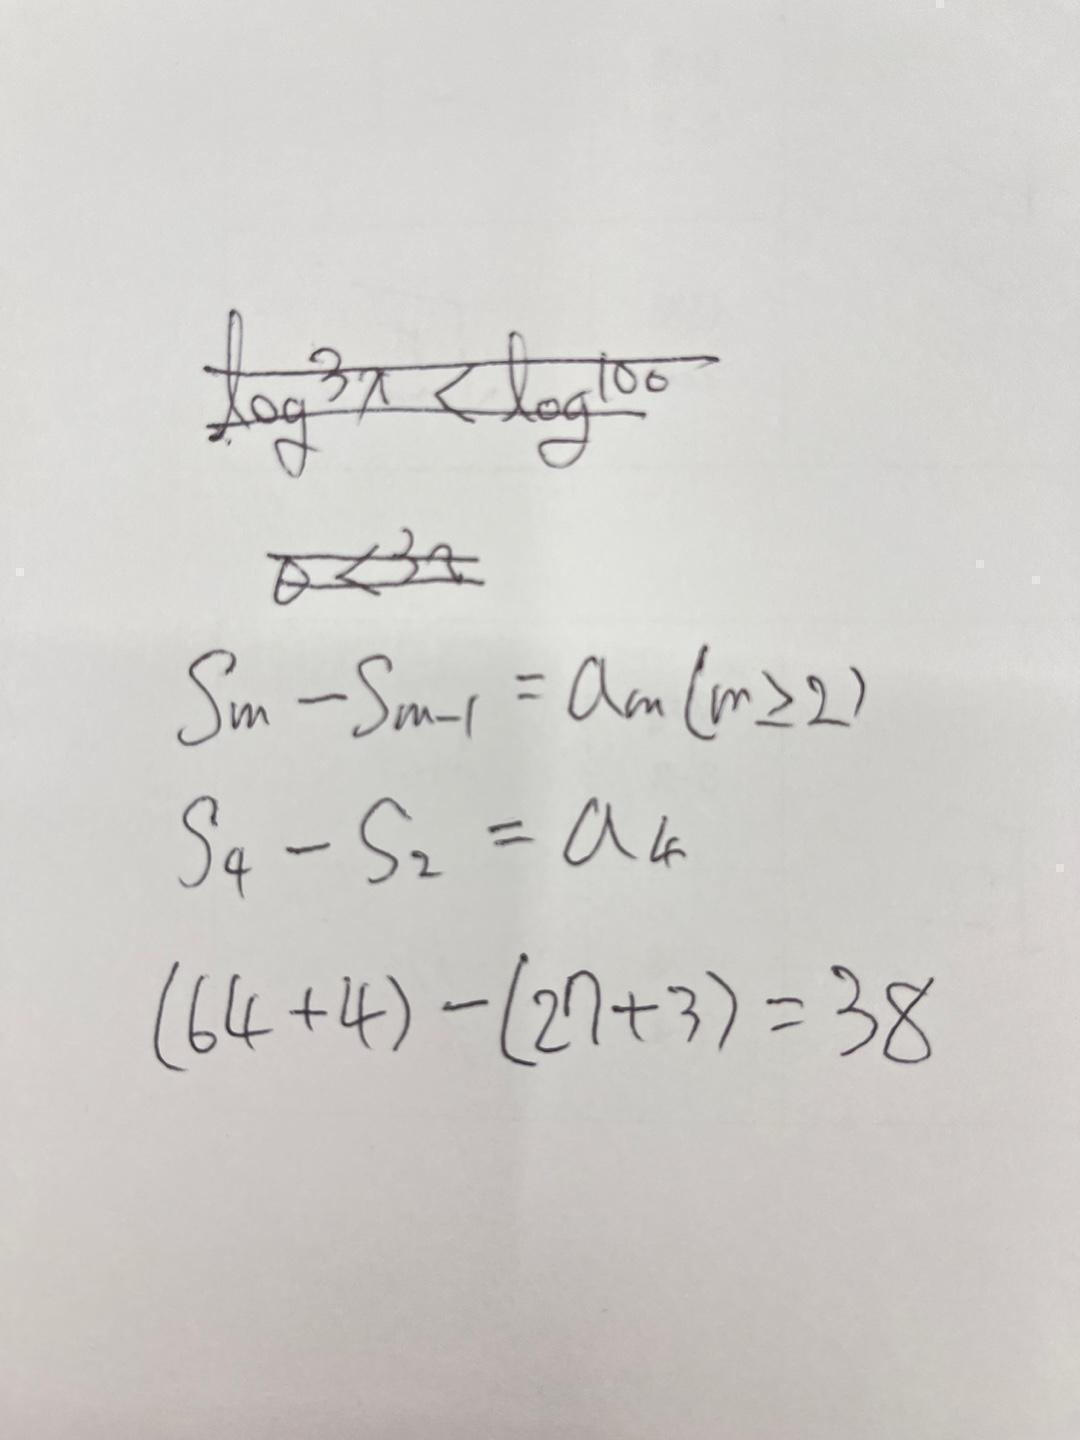 log 3x < log 100
0 < 3x
Sm - Sm-1 = am (m ≥ 2)
S4 - S2 = a4
(64+4) - (27+3) = 38